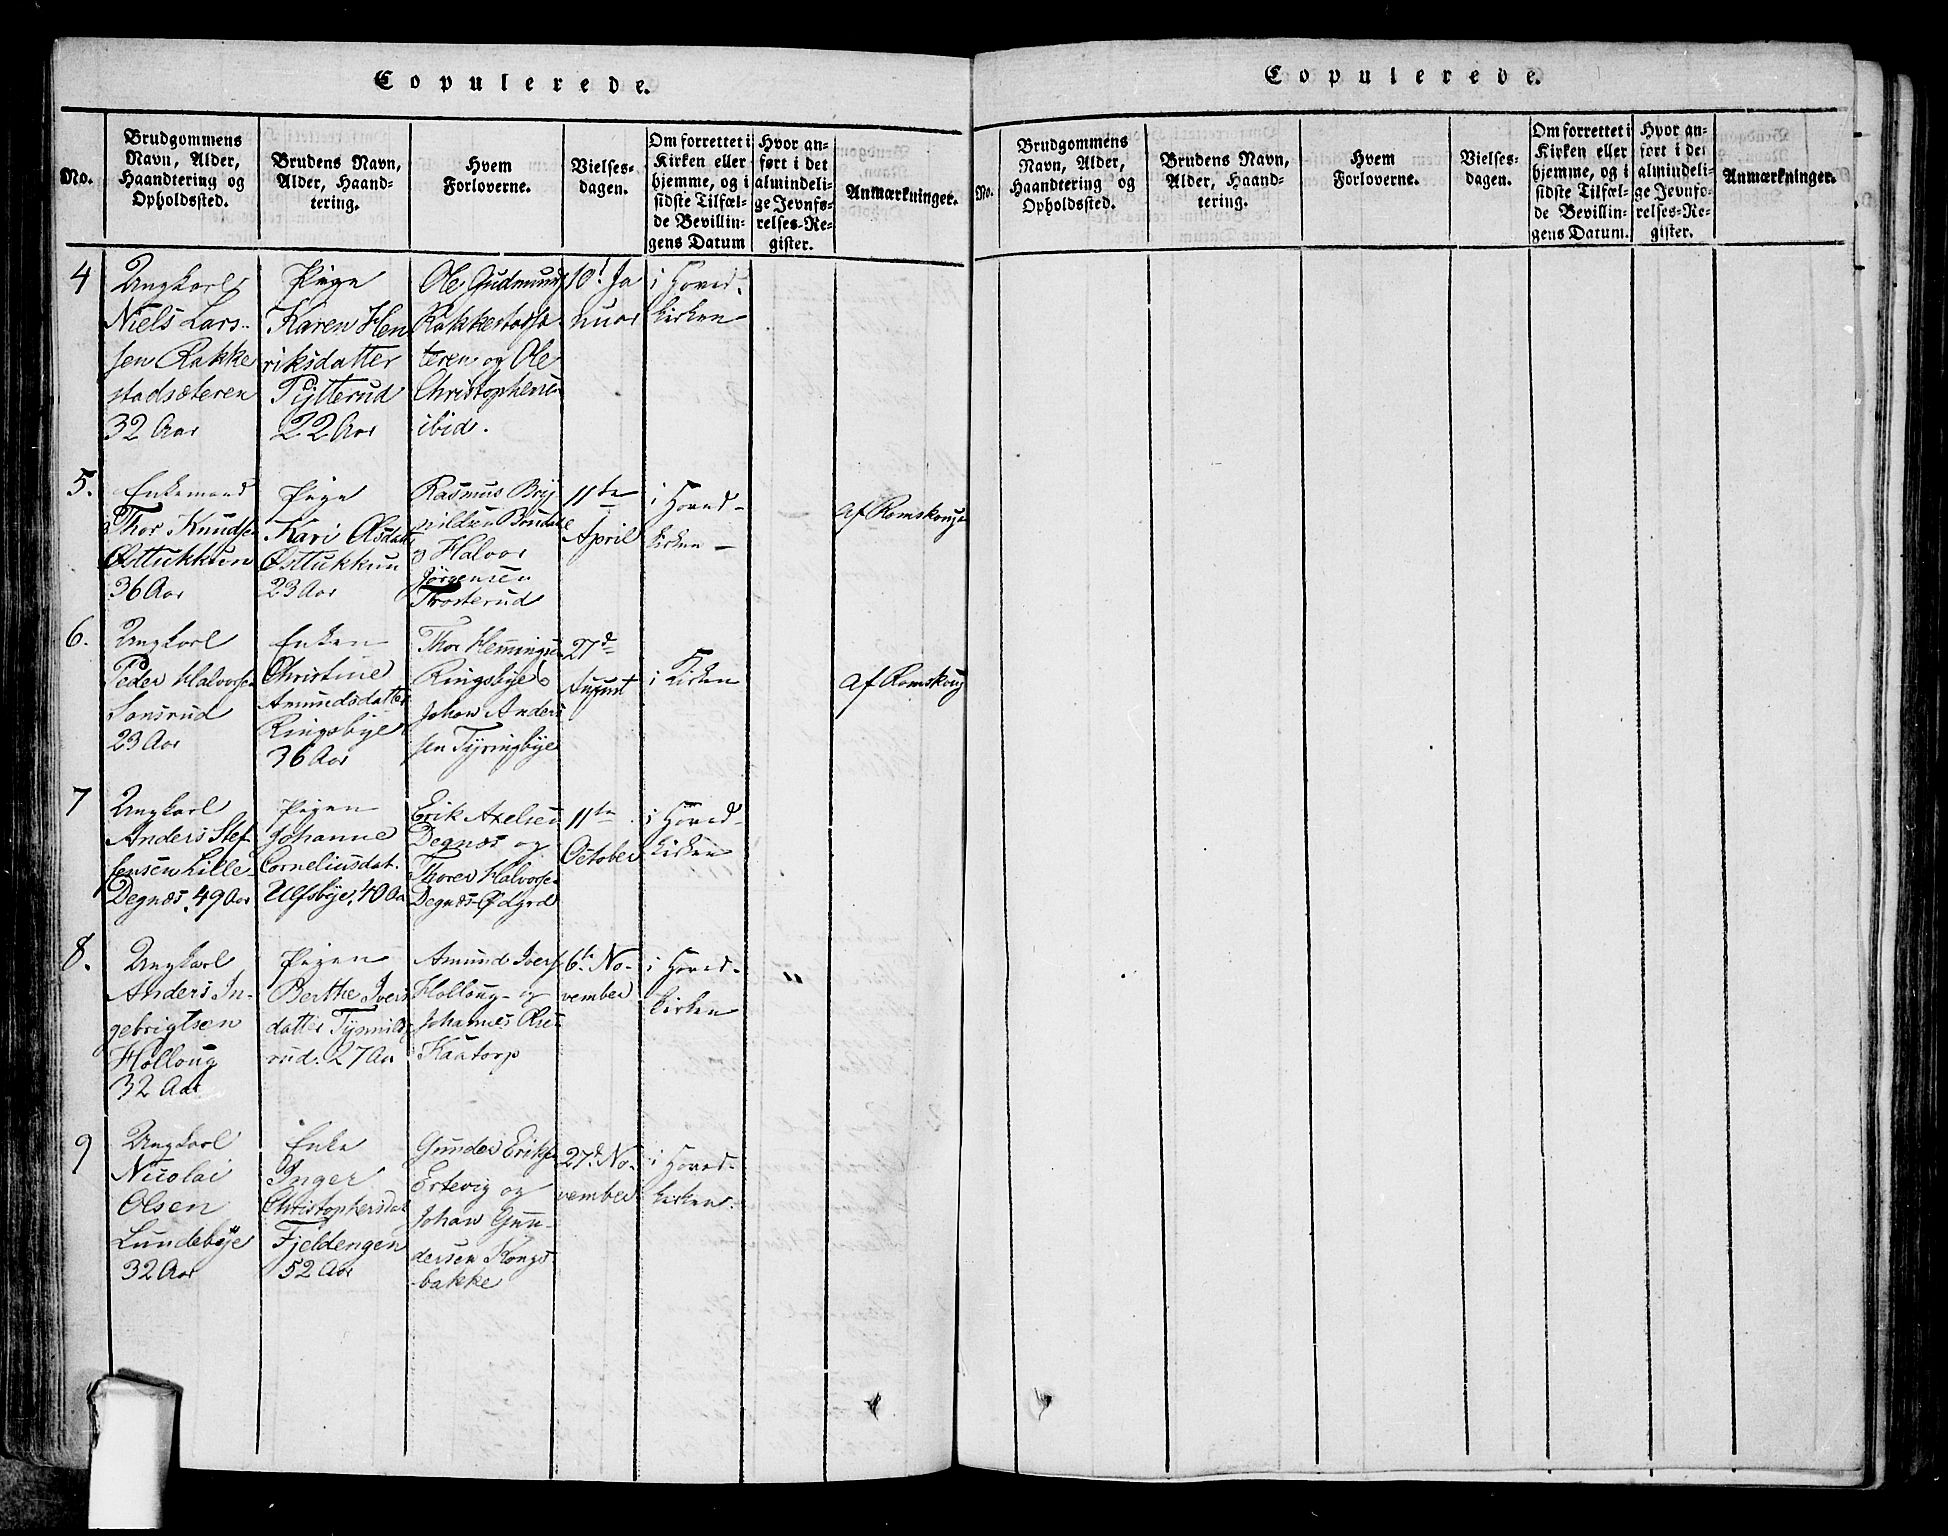 Copulerede.
No.
Brudgommens
Navn, Alder,
Haandtering og
Opholdssted.
Brudens Navn,
Alder, Haand-
tering.
Hvem
Forloverne.
Vielses-
dagen.
Om forrettet i
Kirken eller
hjemme, og i
sidste Tilfæl-
de Bevillin-
gens Datum
Hvor an-
ført i det
almindeli-
ge Jevnfø-
relses-Re-
gister.
Anmærkninger.
4
Ungkarl
Niels Lars-
sen Rakke
stadsæteren
32 Aar
Pige
Karen Hen
riksdatter
Tytterud
22 Aar
Ole Gudmunds
Rakkestadsæ
teren og Ole
Christophersen
ibid.
10. Ja
nuar
i Hoved-
kirken
5.
Enkemand
Thor Knudsen
Østtukkun
36 Aar
Pige
Kari Olsdatt
Østtukkun
23 Aar
Rasmus Bry
nildsen
Halvor
Jørgensen
Trosterud
11te
April
i Hoved-
kirken -
af Romskoug
6.
Ungkarl
Peder Halvorsen
Sonsrud
23 Aar
Enken
Christine
Amundsdatter
Ringsbye
36 Aar
Thor Hemmings
Ringsbye
Johan Anders
sen Tyringbye
27de
August
i Kirken
af Romskoug
7
Ungkarl
Anders Stef
fensen Lille
Degnæs, 49 Aar
Pigen
Johanne
Corneliusdat.
Ulfsbye, 40 Aa
Erik Axelsen
Degnæs og
Thorer Halvorsen
Degnæs-Ødgrd
11te
October
i Hoved-
kirken
8.
Ungkarl
Anders In-
gebrigtsen
Holloug
32 Aar
Pigen
Berthe Ivers
datter
rud. 27 Aar
Amund Ivers
Holloug - og
Johannes
Kaatorp
6te No-
vember
i Hoved-
kirken
"
9
Ungkarl
Nicolai
Olsen
Lundebye
32 Aar
Enke
Inger
Christophersdat
Fjeldengen
52 Aar
Gunder Eriksen
Ertevig og
Johan Gun-
dersen Kongs
-bakke
27d. No-
vember
i Hoved-
kirken.
Copulerede.
No.
Brudgommens
Navn, Alder,
Haandtering og
Opholdssted.
Brudens Navn,
Alder, Haand-
tering.
Hvem
Forloverne.
Vielses-
dagen.
Om forrettet i
Kirken eller
hjemme, og i
sidste Tilfæl-
de Bevillin-
gens Datum.
Hvor an-
ført i det
almindeli-
ge Jevnfø-
relses-Re-
gister.
Anmærkninger.